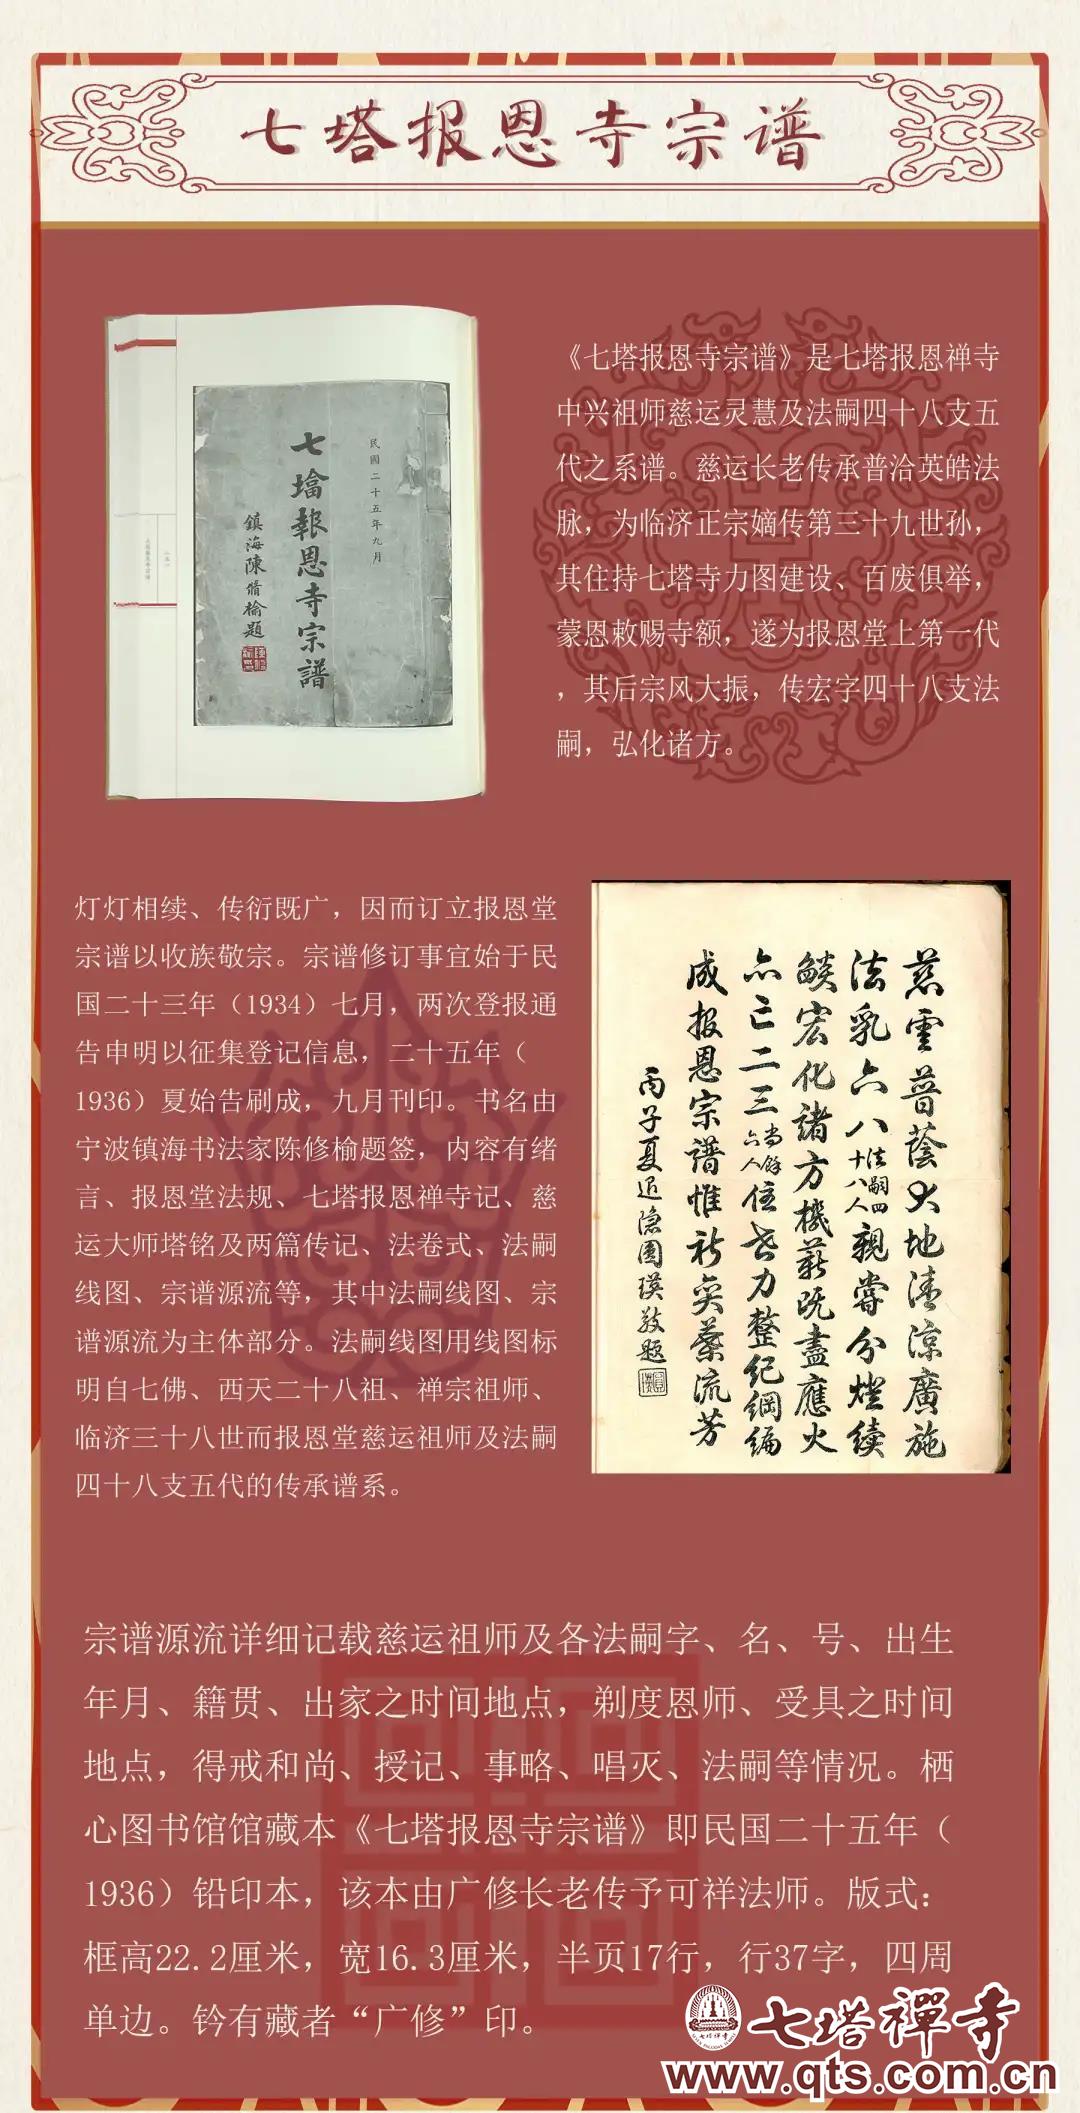 七塔报恩寺宗谱
民國二十五年九月
七塔報恩寺宗譜
鎮海陳脩榆題
《七塔报恩寺宗谱》是七塔报恩禅寺
中兴祖师慈运灵慧及法嗣四十八支五
代之系谱。慈运长老传承普洽英皓法
脉，为临济正宗嫡传第三十九世孙，
其住持七塔寺力图建设、百废俱举，
蒙恩敕赐寺额，遂为报恩堂上第一代
，其后宗风大振，传宏字四十八支法
嗣，弘化诸方。
灯灯相续、传衍既广，因而订立报恩堂
宗谱以收族敬宗。宗谱修订事宜始于民
国二十三年（1934）七月，两次登报通
告申明以征集登记信息，二十五年（
1936）夏始告刷成，九月刊印。书名由
宁波镇海书法家陈修榆题签，内容有绪
言、报恩堂法规、七塔报恩禅寺记、慈
运大师塔铭及两篇传记、法卷式、法嗣
线图、宗谱源流等，其中法嗣线图、宗
谱源流为主体部分。法嗣线图用线图标
明自七佛、西天二十八祖、禅宗祖师、
临济三十八世而报恩堂慈运祖师及法嗣
四十八支五代的传承谱系。
慈雲普蔭大地清涼廣施
法乳六八法嗣四十八人親嘗分燈續
燄宏化諸方機薪既盡應火
亦亡二三尚餘六人住世力整纪綱編
成报恩宗譜惟祈奕葉流芳
丙子夏退隐圓瑛敬题
宗谱源流详细记载慈运祖师及各法嗣字、名、号、出生
年月、籍贯、出家之时间地点，剃度恩师、受具之时间
地点，得戒和尚、授记、事略、唱灭、法嗣等情况。栖
心图书馆馆藏本《七塔报恩寺宗谱》即民国二十五年（
1936）铅印本，该本由广修长老传予可祥法师。版式：
框高22.2厘米，宽16.3厘米，半页17行，行37字，四周
单边。钤有藏者“广修”印。
七塔禪寺
www.qts.com.cn